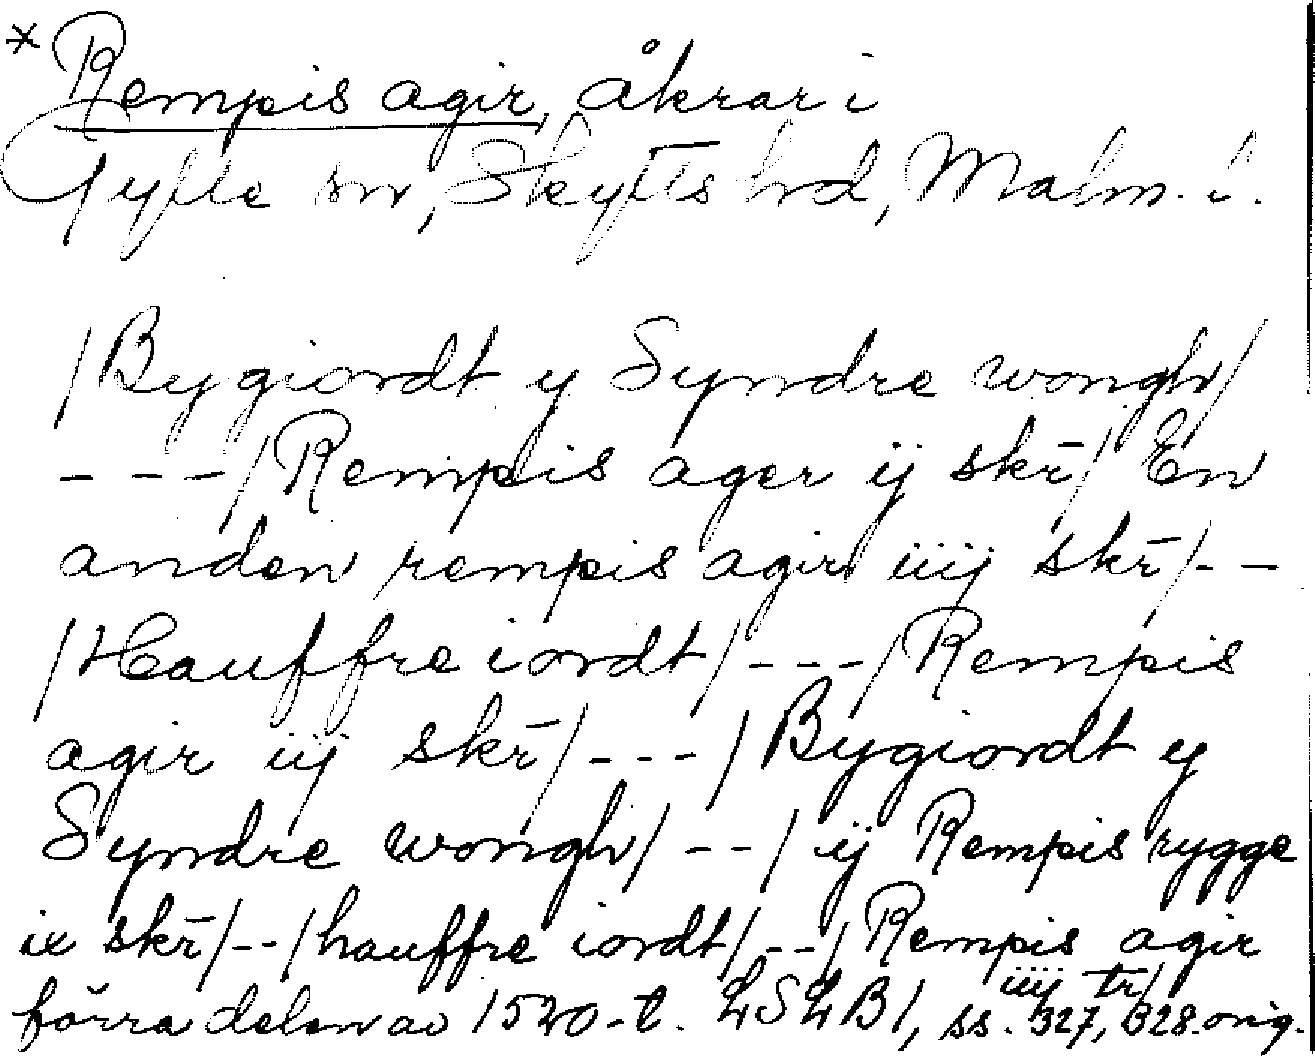 * Rempis agir, åkrar i
Gylle sn, Skytts hd, Malm. l.
/Bygiordt y Syndre wongh/
- - -/Rempis ager ij skr̄/ En
anden rempis agir iiij skr̄/- -
/Hauffre iordt/- - -/Rempis
agir iij skr̄/- - -/Bygiordt y
Syndre wongh/ - -/ ij Rempis rygge
ix skr̄/- -/hauffre iordt/- -/Rempis agir
iiij tr/
förra delen av 1520-t. LSLB1, ss. 327, 328. orig.